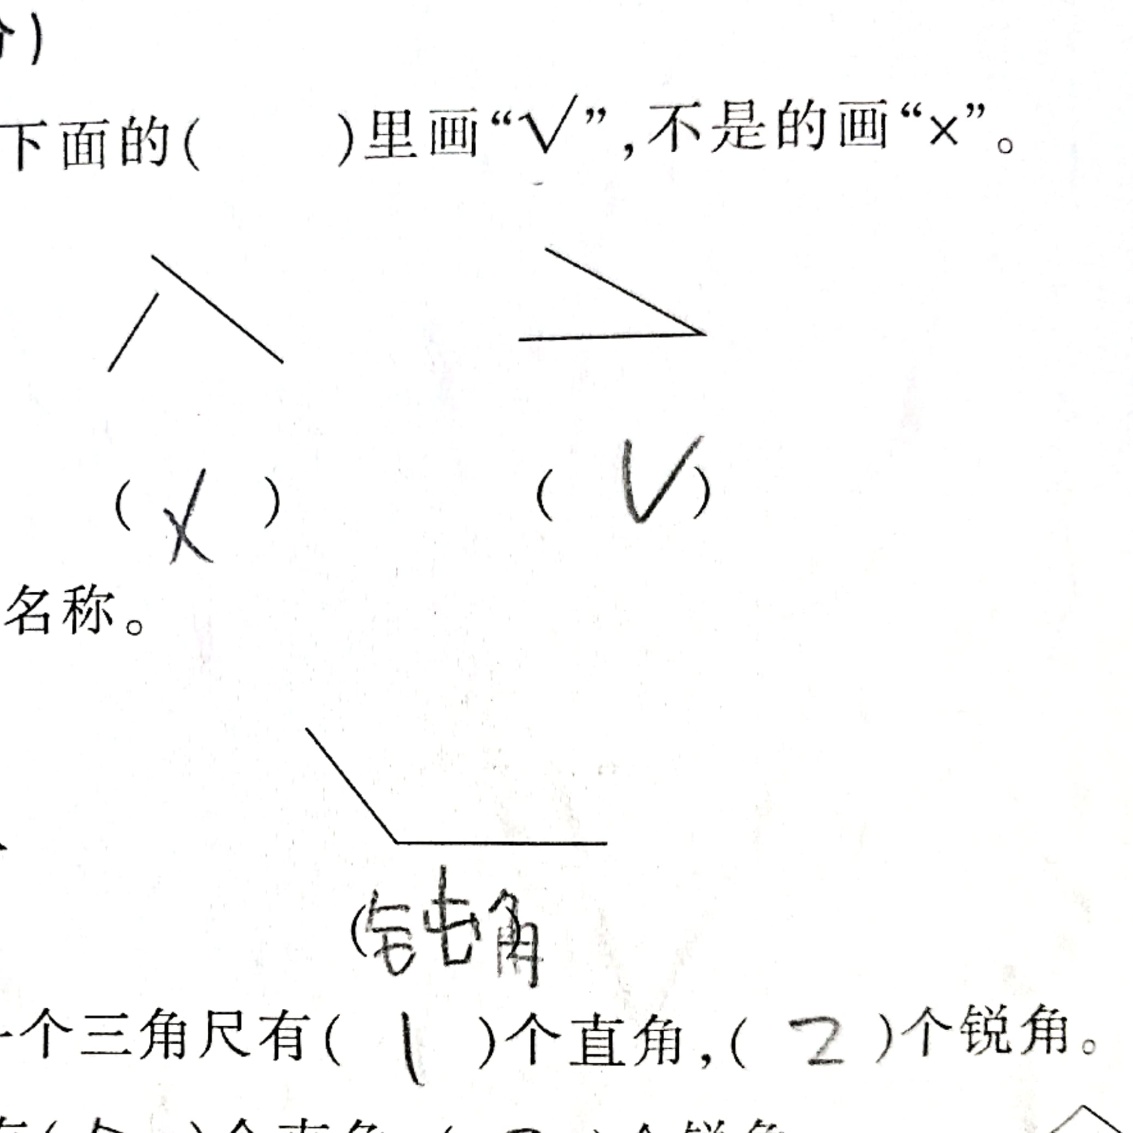 分)
下面的(　　)里画“√”,不是的画“×”。
(×) (√)
名称。
(钝角
一个三角尺有(1)个直角,(2)个锐角。